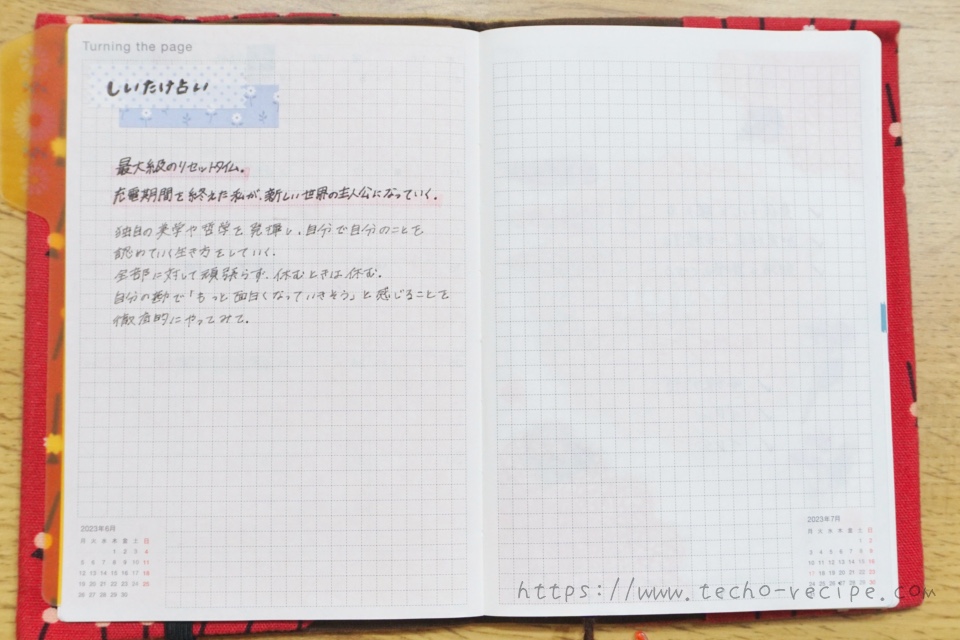 Turning the page
しいたけ占い
最大級のリセットタイム。
充電期間を終えた私が、新しい世界の主人公になっていく。
独自の美学や哲学を発揮し、自分で自分のことを
認めていく生き方をしていく。
全部に対して頑張らず、休むときは休む。
自分の勘で「もっと面白くなっていきそう」と感じることを
徹底的にやってみて。
2023年6月
月 火 水 木 金 土 日
1 2 3 4
5 6 7 8 9 10 11
12 13 14 15 16 17 18
19 20 21 22 23 24 25
26 27 28 29 30
2023年7月
月 火 水 木 金 土 日
1 2
3 4 5 6 7 8 9
10 11 12 13 14 15 16
17 18 19 20 21 22 23
24 25 26 27 28 29 30
https://www.techo-recipe.com